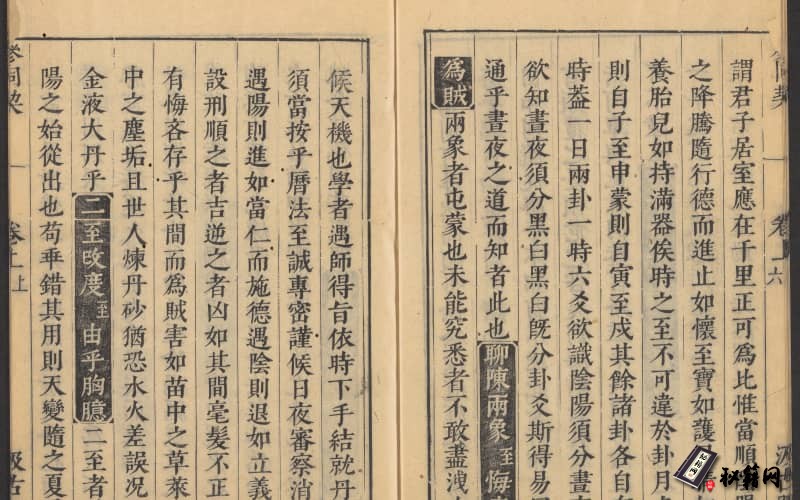 契
卷上
六
謂君子居室應在千里正可為比惟當順
之降騰隨行德而進止如懷至寶如護
養胎兒如持滿器俟時之至不可違於卦月
則自子至申蒙則自寅至戌其餘諸卦各自
時葢一日兩卦一時六爻欲識陰陽須分晝
欲知晝夜須分黑白黑白旣分卦爻斯得易
通乎晝夜之道而知者此也聊陳兩象至悔
為賊兩象者屯蒙也未能究悉者不敢盡洩
候天機也學者遇師得旨依時下手結就丹
須當按乎曆法至誠專密謹候日夜審察消
遇陽則進如當仁而施德遇陰則退如立義
設刑順之者吉逆之者凶如其間毫髮不正
有悔吝存乎其間而為賊害如苗中之草萊
中之塵垢且世人煉丹砂猶恐水火差誤况
金液大丹乎二至改度至由乎胸臆二至者
陽之始從出也苟乖錯其用則天變隨之夏
參同契
卷上
汲古
秘籍网